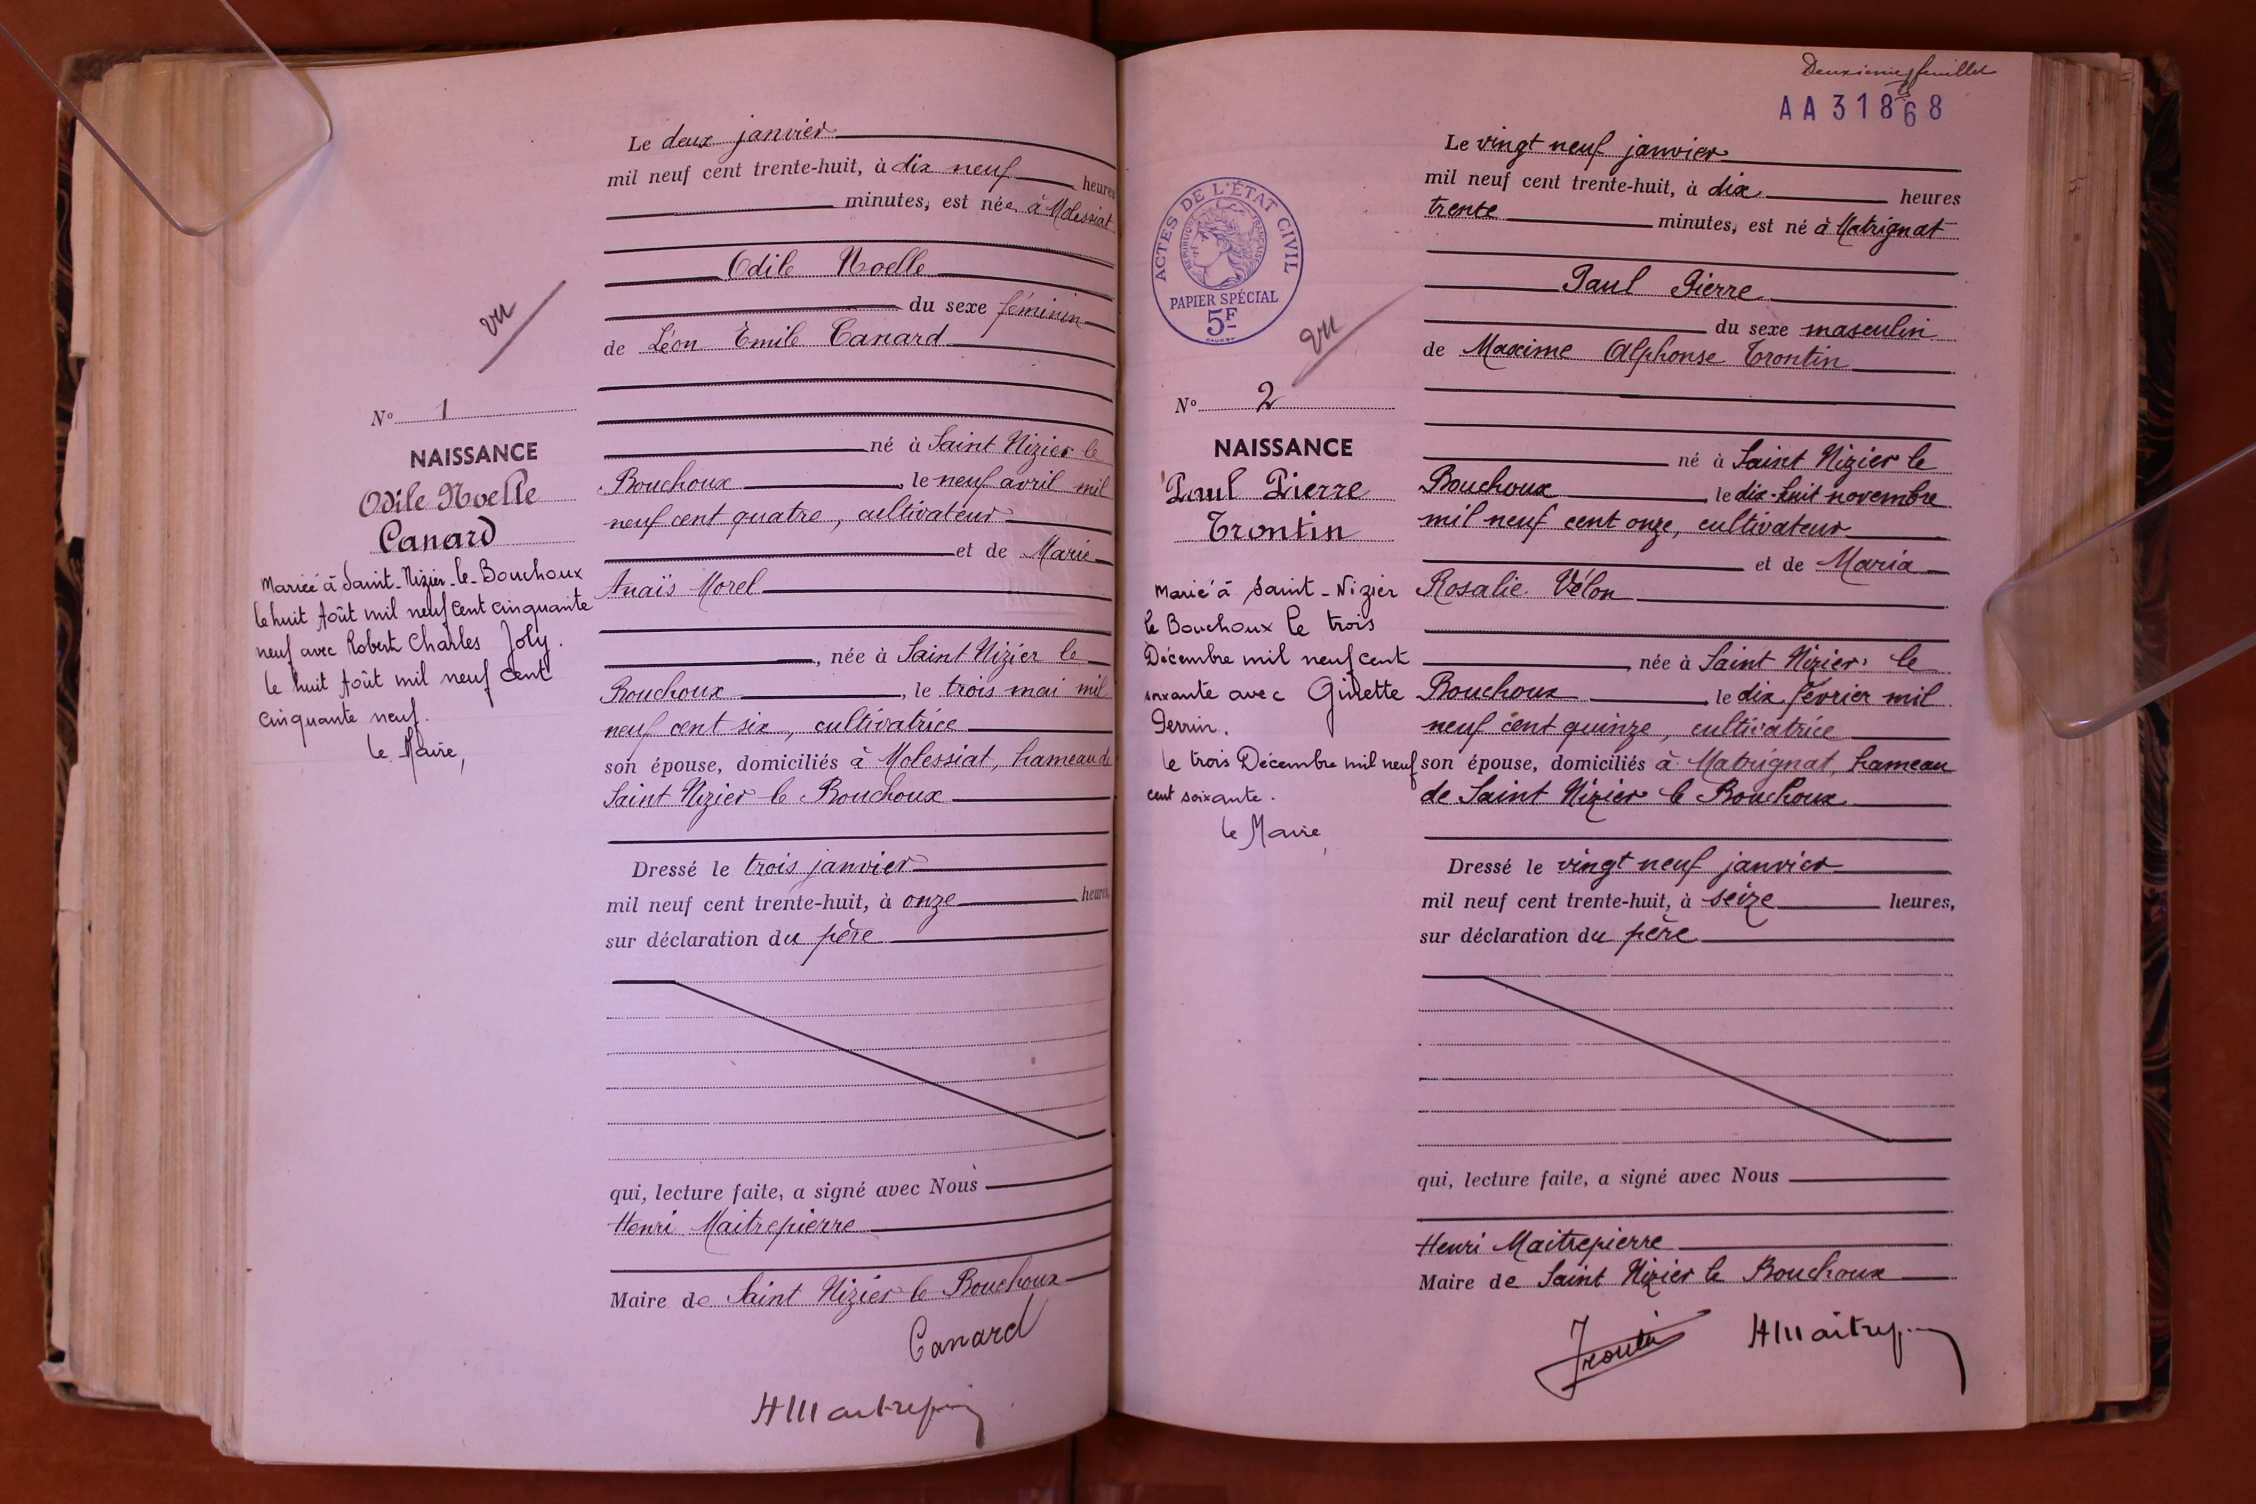 Le deux janvier
mil neuf cent trente-huit, à dix neuf heures
minutes, est née à Molessiat
Odile Noelle
du sexe féminin
de Léon Emile Canard
né à Saint Nizier le
Bouchoux, le neuf avril mil
neuf cent quatre, cultivateur
et de Marie
Anaïs Morel
, née à Saint Nizier le
Bouchoux, le trois mai mil
neuf cent six, cultivatrice
son épouse, domiciliés à Molessiat, hameau de
Saint Nizier le Bouchoux
Dressé le trois janvier
mil neuf cent trente-huit, à onze heures,
sur déclaration du père
qui, lecture faite, a signé avec Nous
Henri Maitrepierre
Maire de Saint Nizier le Bouchoux
Canard
HMaitrepierre
vu
N° 1
NAISSANCE
Odile Noelle
Canard
Mariée à Saint-Nizier-le-Bouchoux
le huit Août mil neuf cent cinquante
neuf avec Robert Charles Joly.
le huit Août mil neuf cent
cinquante neuf.
le Maire,
Deuxième feuillet
AA31868
ACTES DE L'ÉTAT CIVIL
RÉPUBLIQUE FRANÇAISE
PAPIER SPÉCIAL
5F
vu
N° 2
NAISSANCE
Paul Pierre
Trontin
Marié à Saint-Nizier
le Bouchoux le trois
Décembre mil neuf cent
soixante avec Ginette
Perrin.
le trois Décembre mil neuf
cent soixante.
le Maire,
Le vingt neuf janvier
mil neuf cent trente-huit, à dix heures
trente minutes, est né à Matrignat
Paul Pierre
du sexe masculin
de Maxime Alphonse Trontin
né à Saint Nizier le
Bouchoux, le dix-huit novembre
mil neuf cent onze, cultivateur
et de Maria
Rosalie Vélon
, née à Saint Nizier le
Bouchoux, le dix février mil
neuf cent quinze, cultivatrice
son épouse, domiciliés à Matrignat, hameau
de Saint Nizier le Bouchoux
Dressé le vingt neuf janvier
mil neuf cent trente-huit, à seize heures,
sur déclaration du père
qui, lecture faite, a signé avec Nous
Henri Maitrepierre
Maire de Saint Nizier le Bouchoux
Trontin
HMaitrepierre